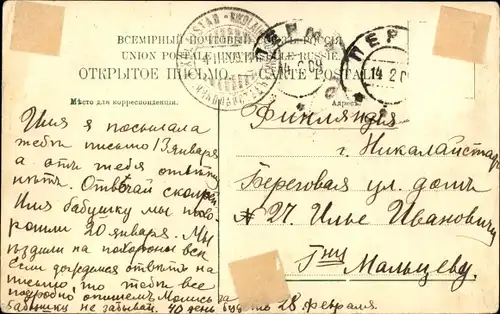 ВСЕМІРНЫЙ ПОЧТОВЫЙ СОЮЗЪ. РОССІЯ.
UNION POSTALE UNIVERSELLE RUSSIE.
ОТКРЫТОЕ ПИСЬМО. — CARTE POSTALE
ПЕРМЬ
14 2 09
ПЕР
14 2 0
Мѣсто для корреспонденціи.
Адресъ
Илія я посылала
тебѣ письмо 13 января
а отъ тебя отвѣта
нѣтъ. Отвѣчай скорѣй
Илія бабушку мы
20 января. Мы
ѣздили на похороны всѣ
если дождемся отвѣтъ на
письмо, то тебѣ все
подробно опишемъ Молись за
бабушку не забывай. 40 день 18 февраля.
Финляндія
г. Николайстадъ
Береговая ул. домъ
№ 27. Илье Ивановичу
Гну
Мальцеву.